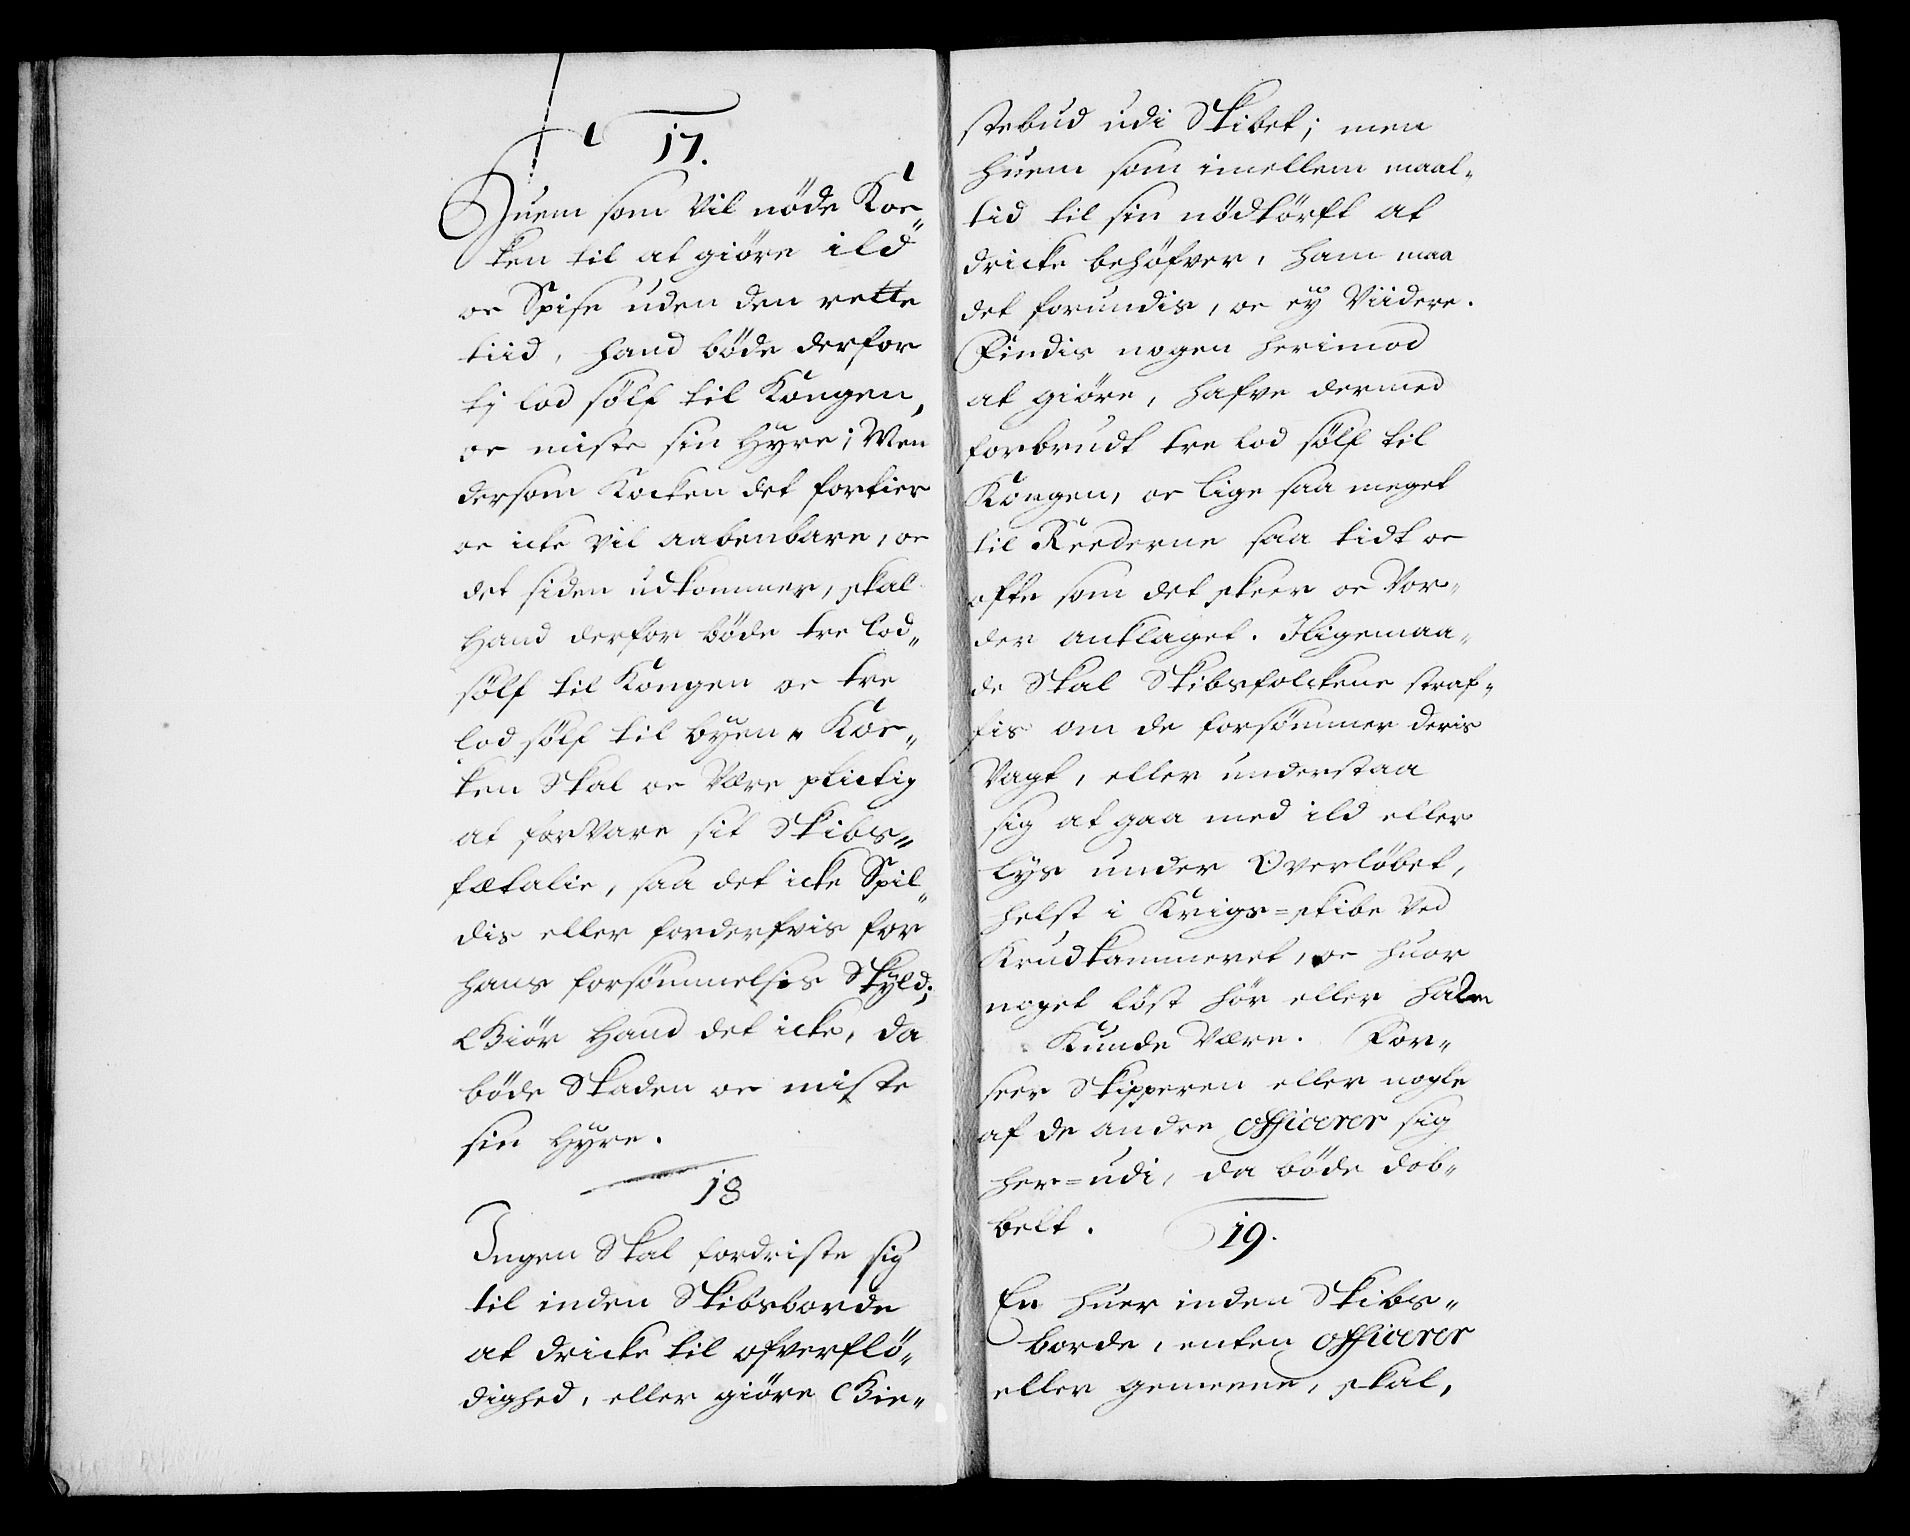 17.
Huem som vil nøde Koc„
ken til at giøre ild
oc Spise uden den rette
tiid, hand bøde derfor
tj lod sølf til Kongen,
oc miste sin hyre; Men
dersom Kocken det fortier
oc icke vil aabenbare, oc
det siden udkommer, skal
hand derfor bøde tre lod„
sølf til Kongen oc tre
lod sølf til byen. Koc„
ken Skal oc være plictig
at forvare sit Skibs„
fætalie, saa det icke Spil„
dis eller forderfvis for
hans forsømmelsis Skyld;
Giør hand det icke, da
bøde Skaden oc miste
sin hyre.
18
Ingen Skal fordriste sig
til inden Skibsborde
at dricke til ofverflø„
dighed, eller giøre Gie„
stebud udi Skibet; men
huem som imellem maal„
tid til sin nødtørft at
dricke behøfver, ham maa
det forundis, oc ey viidere.
Findis nogen herimod
at giøre, hafve dermed
forbrudt tre lod sølf til
Kongen, oc lige saa meget
til Reederne saa tidt oc
offte som det skeer oc vor„
der anklaget. Iligemaa„
de Skal Skibsfolckene straf„
fis om de forsømmer deris
Vagt, eller understaa
sig at gaa med ild eller
lys under Overløbet,
helst i Krigs=skibe ved
Krudkammeret, oc huor
noget løst hør eller halm
Kunde være. For„
seer Skipperen eller nogle
af de andre officerer sig
her=udi, da bøde dob„
belt.
19.
En huer inden Skibs„
borde, enten officerer
eller gemeene, skal,